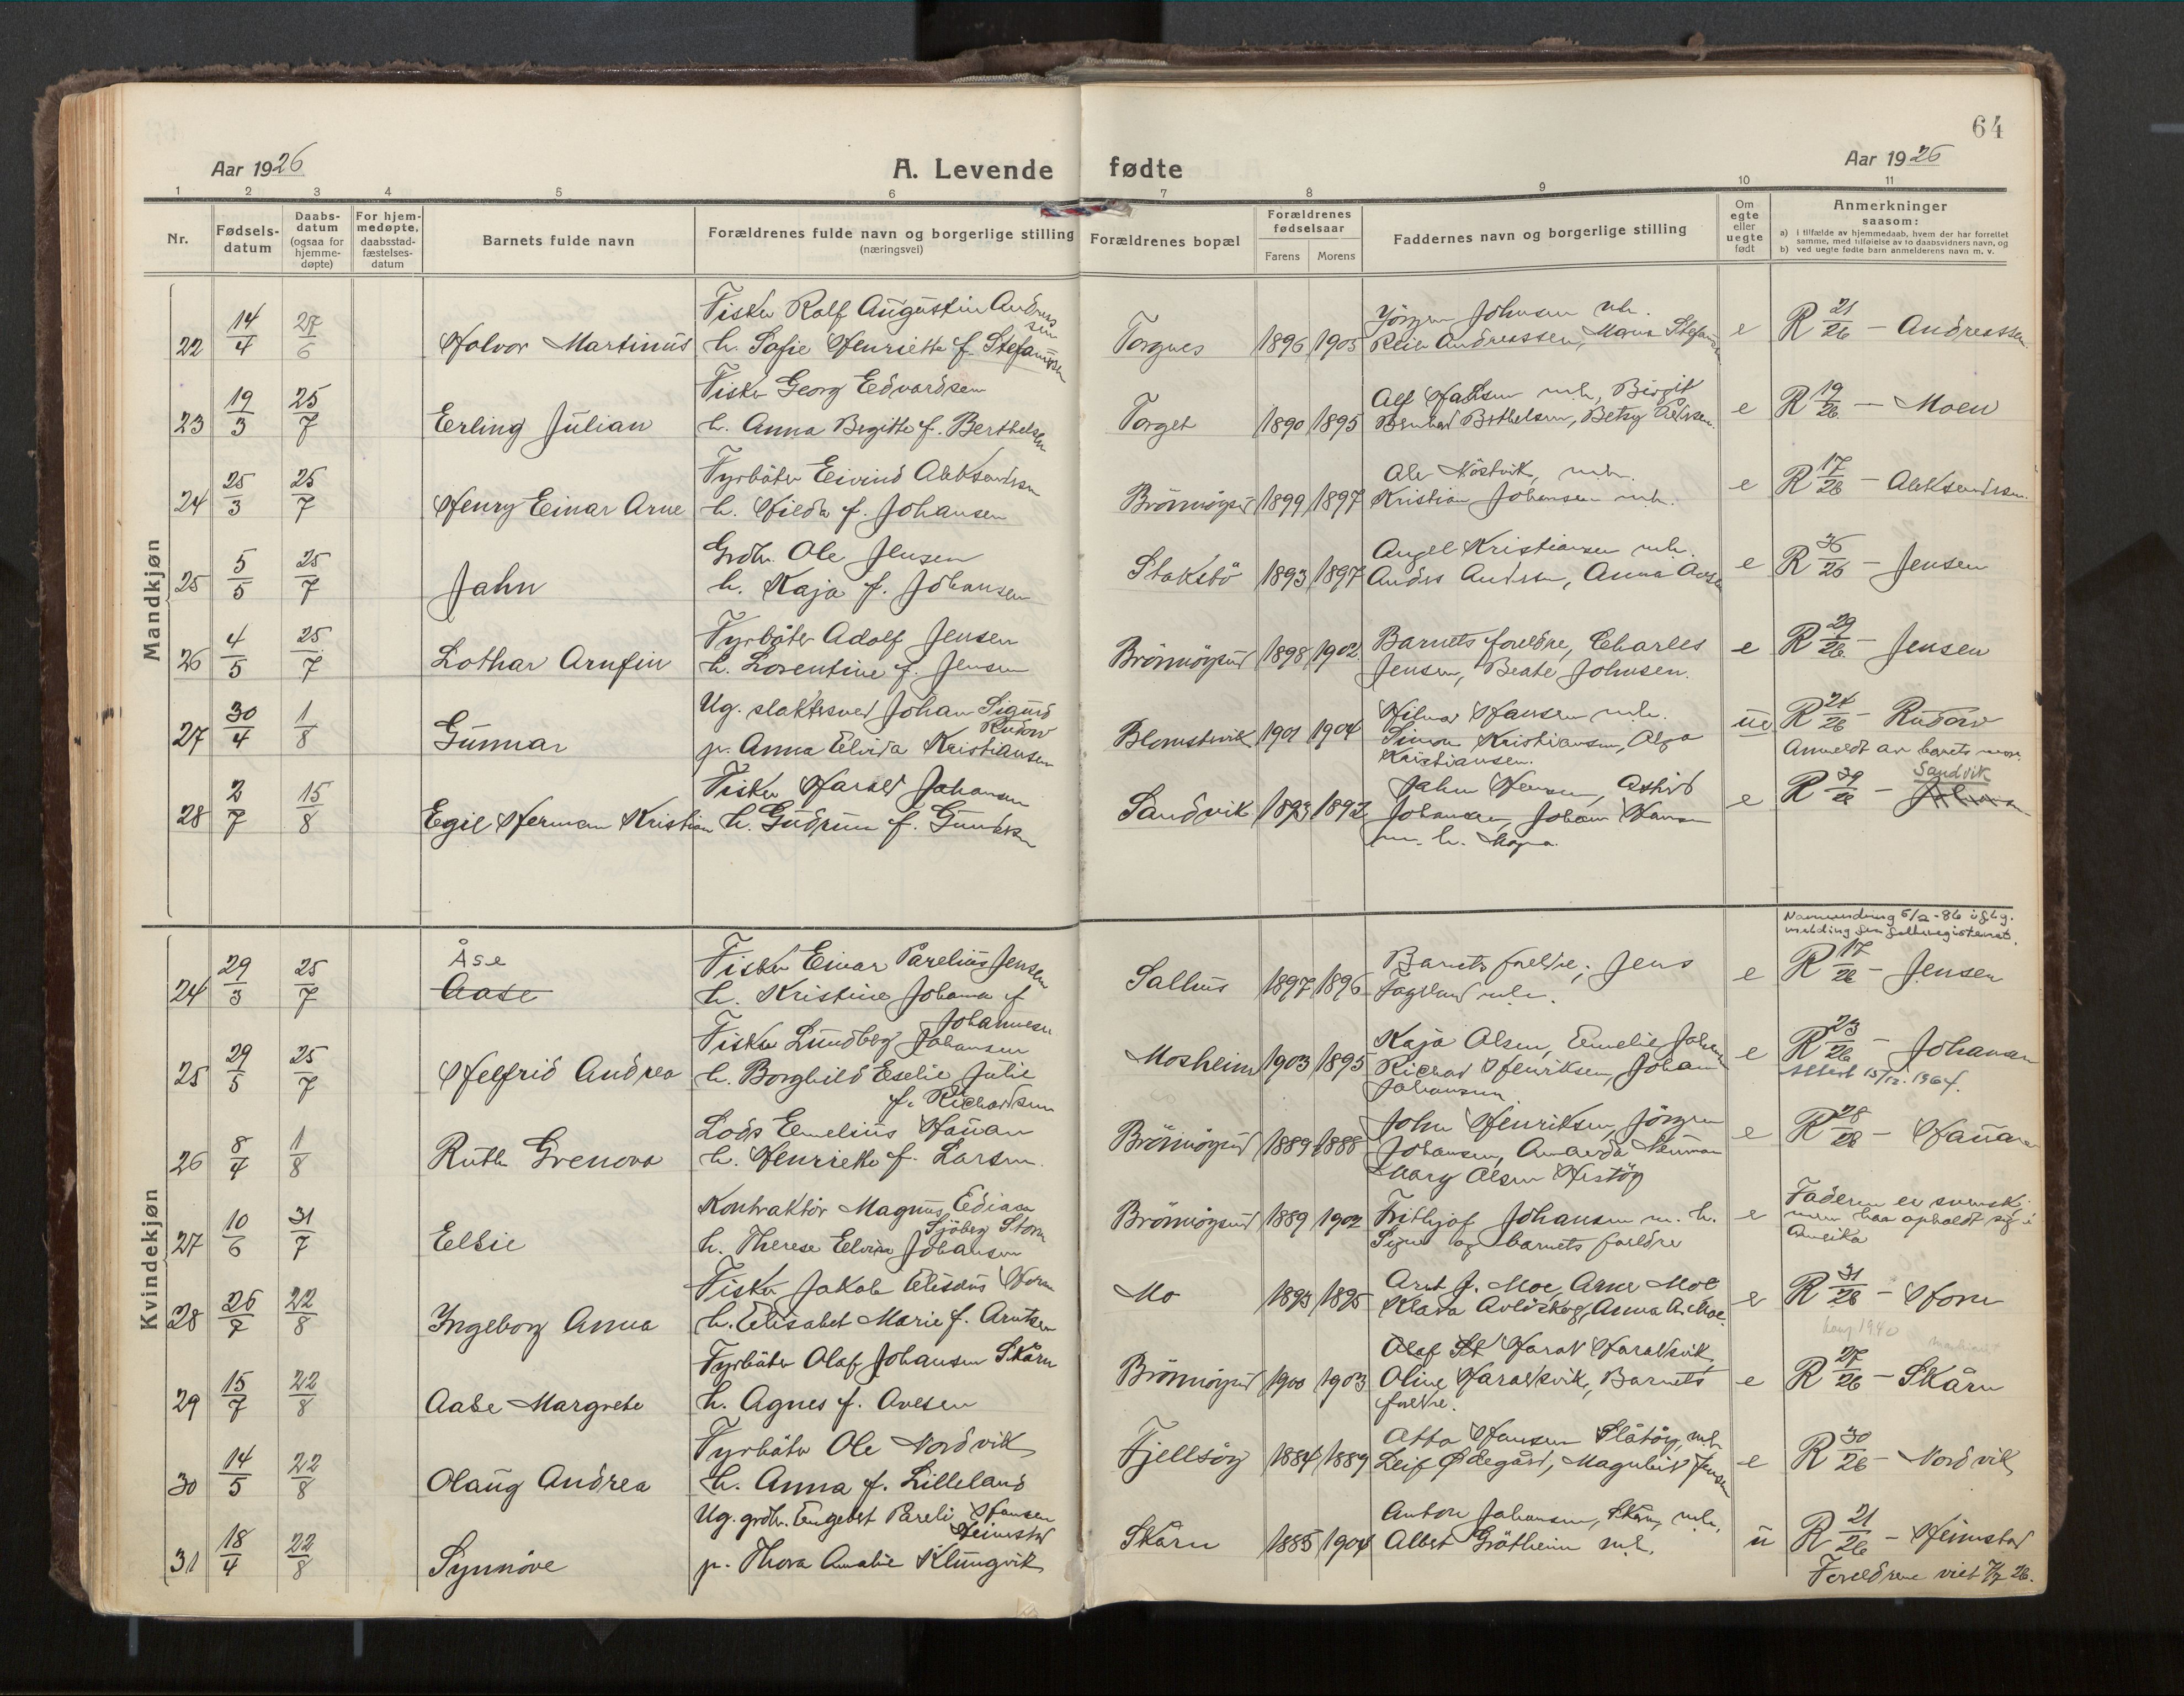 64
Aar 1926
A. Levende fødte
Aar 1926
1 2 3 4 5 6 7 8 9 10 11
Nr.
Fødsels-
datum
Daabs-
datum
(ogsaa for
hjemme-
døpte)
For hjem-
medøpte,
daabsstad-
fæstelses-
datum
Barnets fulde navn
Forældrenes fulde navn og borgerlige stilling
(næringsvei)
Forældrenes bopæl
Forældrenes
fødselsaar
Farens Morens
Faddernes navn og borgerlige stilling
Om
egte
eller
uegte
født
Anmerkninger
saasom:
a) i tilfælde av hjemmedaab, hvem der har forrettet
samme, med tilføielse av to daabsvidners navn, og
b) ved uegte fødte barn anmelderens navn m. v.
Mandkjøn
22 14/4 27/6 Halvor Martinus
Fisker Rolf Augustin Andreas
sen
h. Sofie Henriette f. Stefanussen
Torgnes 1896 1905
Jörgen Johnsen m.h.
Reier Andreassen, Maria
e R 21/26 - Andreassen
23 19/3 25/7 Erling Julian
Fisker Georg Edvardsen
h. Anna Birgitte f. Berthelsen
Torget 1890 1895
Alf Hansen m.h., Birgit
Bernhard Berthelsen, Betsy
e R 19/26 - Moen
24 25/3 25/7 Henry Einar Arne
Fyrböter Eivind Aleksandersen
h. Hilda f. Johansen
Brönnöysund 1899 1897
Ole m.h.
Kristian Johansen m.h.
e R 17/26 - Aleksandersen
25 5/5 25/7 Jahn
Grdbr. Ole Jensen
h. Kaja f. Johansen
Stoksbö 1893 1897
Angel Kristiansen m.h.
Anders Andersen, Anna
e R 36/26 - Jensen
26 4/5 25/7 Lothar Arnfin
Fyrböter Adolf Jensen
h. Lorentine f. Jensen
Brönnöysund 1898 1902
Barnets foreldre, Charles
Jensen, Beate Johnsen.
e R 29/26 - Jensen
27 30/4 1/8 Gunnar
Ug. slaktersvend Johan Sigurd
Rudow
p. Anna Elvida Kristiansen
Blomstervik 1901 1904
Hilmar Hansen m.h.
Simon Kristiansen, Olga
Kristiansen.
ue R 24/26 - Rudow
Anmeldt av barnets mor.
28 2/7 15/8 Egil Herman Kristian
Fisker Harald Johansen
h. Gudrun f. Gundersen
Sandvik 1893 1892
Jahn Hansen, Astrid
Johansen, Johan Hansen
m. h. Mapa.
e R 39/26 - Sandvik
Kvindekjøn
Navneendring 6/2-86 iflg.
melding fra folkeregisteret.
24 29/3 25/7 Åse
Aase
Fisker Einar Parelius Jensen
h. Kristine Johanna f.
Johannesen
Salhus 1897 1896
Barnets foreldre, Jens
Fagerland m.h.
e R 17/26 - Jensen
25 29/5 25/7 Helfrid Andrea
Fisker Lundberg Johansen
h. Borghild Eselie Julie
f. Richardsen
Mosheim 1903 1895
Kaja Olsen, Emelie Johansen
Richard Henriksen, Johan
Johansen
e R 23/26 - Johansen
attest 15/12. 1964.
26 8/4 1/8 Ruth Grenova
Lods Emelius Hauan
h. Henriette f. Larsen.
Brönnöysund 1889 1888
John Henriksen, Jörgen
Johansen, Amanda Hauan
Mary Olsen Hestöy
e R 28/26 - Hauan
27 10/6 31/7 Elsie
Kontraktör Magnus Edian
Sjöberg Storm
h. Therese Elvine Johansen
Brönnöysund 1889 1902
Frithjof Johansen m. h.
Signe og barnets foreldre
e Faderen er svensk
men har opholdt sig i
Amerika
28 26/7 22/8 Ingeborg Anna
Fisker Jakob Elisæus Horn
h. Elisabet Marie f. Arntsen
Mo 1893 1895
Arnt J. Moe, Arne Moe
Klara Anna A. Moe.
e R 31/26 - Horn
29 15/7 22/8 Aase Margrete
Fyrböter Olaf Johansen Skårn
h. Agnes f. Olsen
Brönnöysund 1900 1903
Olaf Harald Haraldsvik,
Oline Haraldsvik, Barnets
foreldre.
e R 27/26 - Skårn
30 14/5 22/8 Olaug Andrea
Fyrböter Ole Nordvik
h. Anna f. Lilleland
Fjellsöy 1884 1889
Otto Hansen Slåtöy, m.h.
Leif Ödegård, Maghild Jensen
e R 30/26 - Nordvik
31 18/4 22/8 Synnöve
Ug. grdbr. Engebet Pareli Hansen
Heimstad
p. Thora Amalie Klungvik
Skårn 1885 1904
Anton Johansen, Skårn, m.h.
Albert Gröttheim m.h.
u R 21/26 - Heimstad
Foreldrene viet 7/7 26.